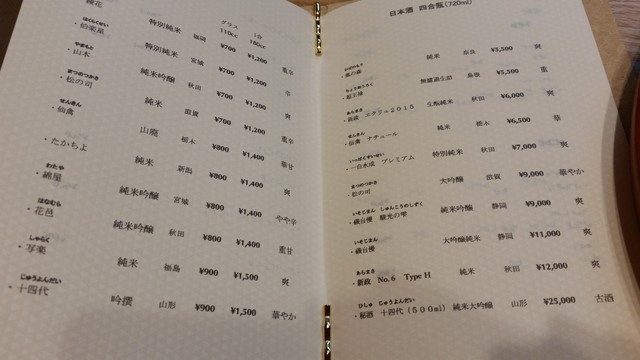 グラス 1合
110cc 180cc
綾花 特別純米 福岡 ¥700 ¥1,200 重辛
はくらくせい
・伯楽星 特別純米 宮城 ¥700 ¥1,200 辛
やまもと
・山本 純米吟醸 秋田 ¥700 ¥1,200 爽
まつのつかさ
・松の司 純米 滋賀 ¥700 ¥1,200 重辛
せんきん
・仙禽 山廃 栃木 ¥800 ¥1,400 華甘
・たかちよ 純米 新潟 ¥800 ¥1,400 爽
わたや
・綿屋 純米吟醸 宮城 ¥800 ¥1,400 やや辛
はなむら
・花邑 純米吟醸 秋田 ¥800 ¥1,400 重甘
しゃらく
・写楽 純米 福島 ¥900 ¥1,500 爽
じゅうよんだい
・十四代 吟撰 山形 ¥900 ¥1,500 華やか
日本酒 四合瓶(720ml)
かぜのもり
・風の森 純米 奈良 ¥5,500 爽
ちょうおうろく
・超王禄 無濾過生詰 島根 ¥5,500 重
あらまさ
・新政 エクリュ2015 生酛純米 秋田 ¥6,000 爽
せんきん
・仙禽 ナチュール 純米 栃木 ¥6,500 華
いっぱくすいせい
・一白水成 プレミアム 特別純米 秋田 ¥7,000 爽
まつのつかさ
・松の司 大吟醸 滋賀 ¥9,000 華やか
いそじまん しゅんこうのしずく
・磯自慢 駿光の雫 純米吟醸 静岡 ¥9,000 爽
いそじまん
・磯自慢 大吟醸純米 静岡 ¥11,000 爽
あらまさ
・新政 No.6 Type H 純米 秋田 ¥12,000 爽
ひしゅ じゅうよんだい
・秘酒 十四代(500ml) 純米大吟醸 山形 ¥25,000 古酒